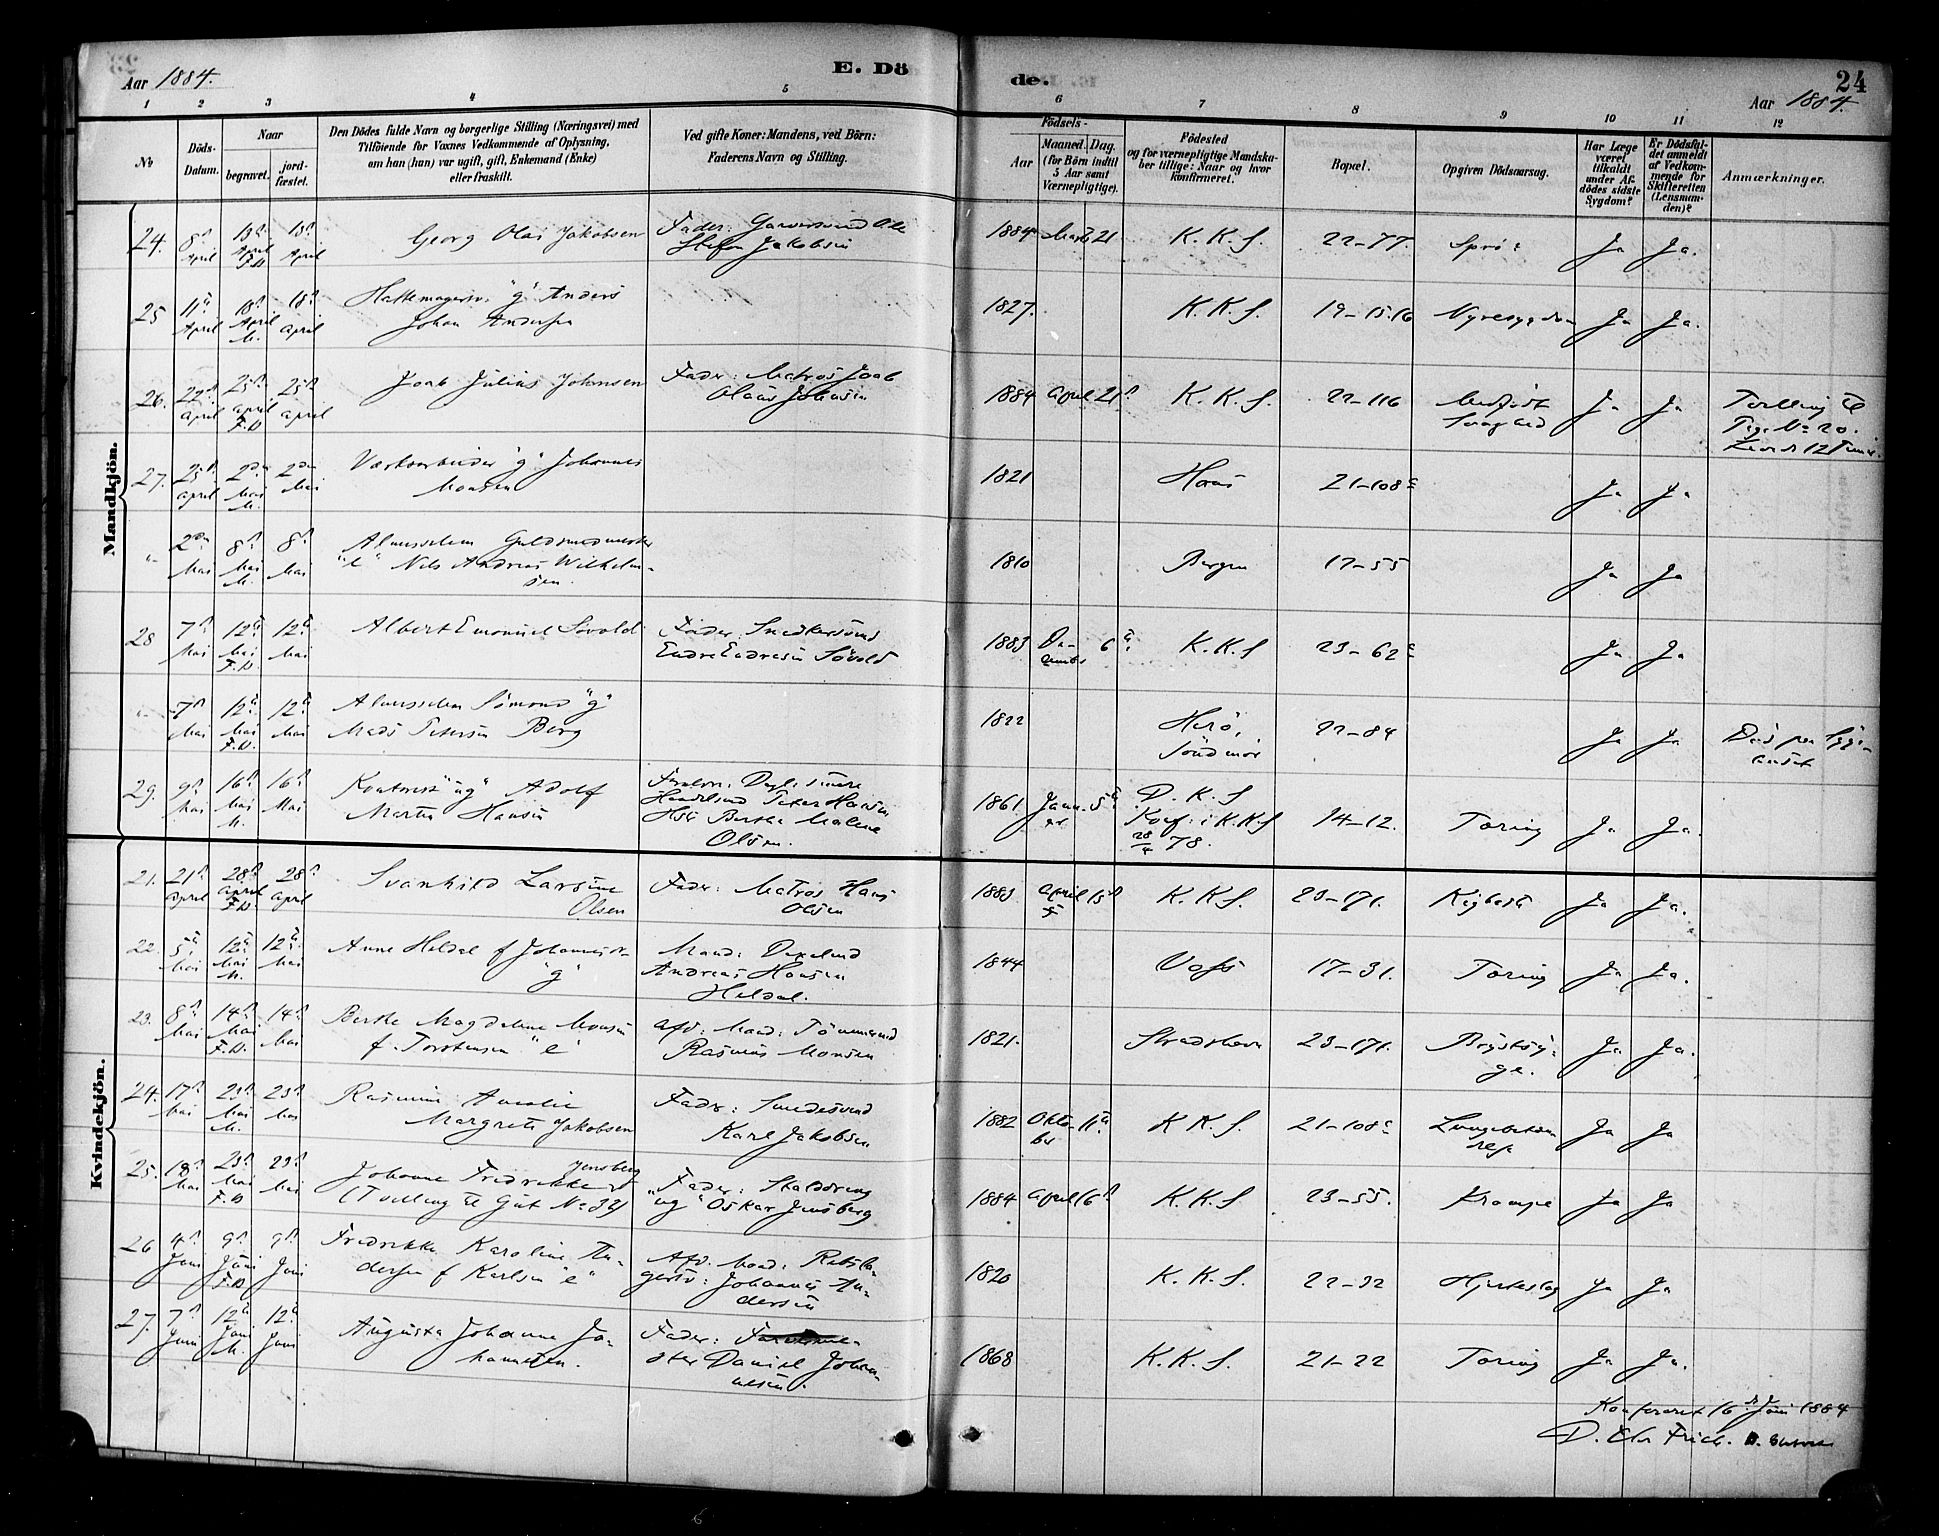 Aar 1884.
E. Dö
de.
24
Aar 1884.
1 2 3 4 5 6 7 8 9 10 11 12
No
Döds-
Datum.
Naar
begravet.
jord-
fæstet.
Den Dödes fulde Navn og borgerlige Stilling (Næringsvei) med
Tilföiende for Voxnes Vedkommende af Oplysning,
om han (hun) var ugift, gift, Enkemand (Enke)
eller fraskilt.
Ved gifte Koner: Mandens, ved Börn:
Faderens Navn og Stilling.
Födsels-
Aar
Maaned. Dag.
(for Börn indtil
5 Aar samt
Værnepligtige).
Födested
og for værnepligtige Mandska-
ber tillige: Naar og hvor
konfirmeret.
Bopæl.
Opgiven Dödsaarsag.
Har Læge
været
tilkaldt
under Af-
dödes sidste
Sygdom?
Er Dödsfal-
det anmeldt
af Vedkom-
mende for
Skifteretten
(Lensman-
den)?
Anmærkninger.
Mandkjön.
24. 8de April 18de April F.D. 18de April Georg Olai Jakobsen Fader: 
Jakobsen 1884 Marts 21 K. K. S. 22-77. Ja Ja.
25 11te April 18de April M. 18de April Hattemagersv. "g" Anders
Johan Andersen 1827. K. K. S. 19-15.16 Nyresygdom Ja Ja.
26. 22de April 25de April F.D. 25de April Joab Julius Johnsen Fader: Matros Joab
Olaus Johnsen 1884 April 21de K. K. S. 22-116 Medfødt
Svaghed Ja Ja Tvilling til
Pige No 20.
27. 25de April 2den Mai M. 2den Mai Værksarbeider "g" Johannes
Monsen 1821 Haus 21-108c Ja Ja
"- 2den Mai 8de Mai M. 8de Mai Almisselem Guldsmedmester
"e" Nils Andreas Wilhelm-
sen. 1810 Bergen 17-55 Ja Ja
28 7de Mai 12te Mai F.D. 12te Mai Albert Emanuel Søvold Fader: Snedkersvend
Endre Endresen Søvold 1883 De-
cember 6te K. K. S 23-62c Ja Ja
"- 7de Mai 12te Mai F.D. 12te Mai Almisselem Sømand "g"
Mads Petersen Berg 1822 Herø,
Søndmør 22-84 Ja Ja Død paa Syge-
huset
29. 9de Mai 16de Mai M. 16de Mai "ug" Adolf
Martin Hansen Peter Hansen
Berthe Malene
Olsen. 1861 Janu-
ar 5te D. K. S
Konf. i K.K.S
28/4 78. 14-12. Tæring Ja Ja.
Kvindekjön.
21. 21de April 28de April F.D. 28de April Svanhild Larsine
Olsen Fader: Matros Hans
Olsen 1883 April 15de K. K. S. 23-171. Kighoste Ja Ja.
22. 5te Mai 12te Mai M. 12te Mai Anne Heldal f Johannesdr
"g" Mand:
Andreas Hansen
Heldal. 1844 Voss 17-31. Tæring Ja Ja.
23. 8de Mai 14de Mai F.D. 14de Mai Berthe Magdalene Monsen
f. Torstensen "e" Afd: Mand: Tømmermd
Rasmus Monsen 1821. Stradshavn 23-171. Brystsy-
ge. Ja Ja.
24. 17de Mai 23de Mai M. 23de Mai Rasmine Amalie
Margrete Jakobsen Fader: Smedesvend
Karl Jakobsen 1882 Okto-
ber 11te K K. S. 21-108c Lungebetæn-
delse Ja Ja
25. 18de Mai 23de Mai F.D 23de Mai Johanne Fredrikke Jensberg
(Tvilling til Gut No 39) Fader:
"ug" Oskar Jensberg 1884 April 16de K. K. S 23-55. Krampe Ja Ja
26 4de Juni 9de Juni F.D. 9de Juni Fredrikke Karoline An-
dersen f Karlsen "e" Afd. Mand: Rebsla-
gersv: Johannes An-
dersen 1820 K. K. S. 22-32 Hjerteslag Ja Ja
27. 7de Juni 12te Juni M. 12te Juni Augusta Johanne Jo-
hannesen. Fader:
Daniel Johan-
nesen. 1868 K. K. S. 21-22 Tæring Ja Ja.
Konfereret 16de Juni 1884